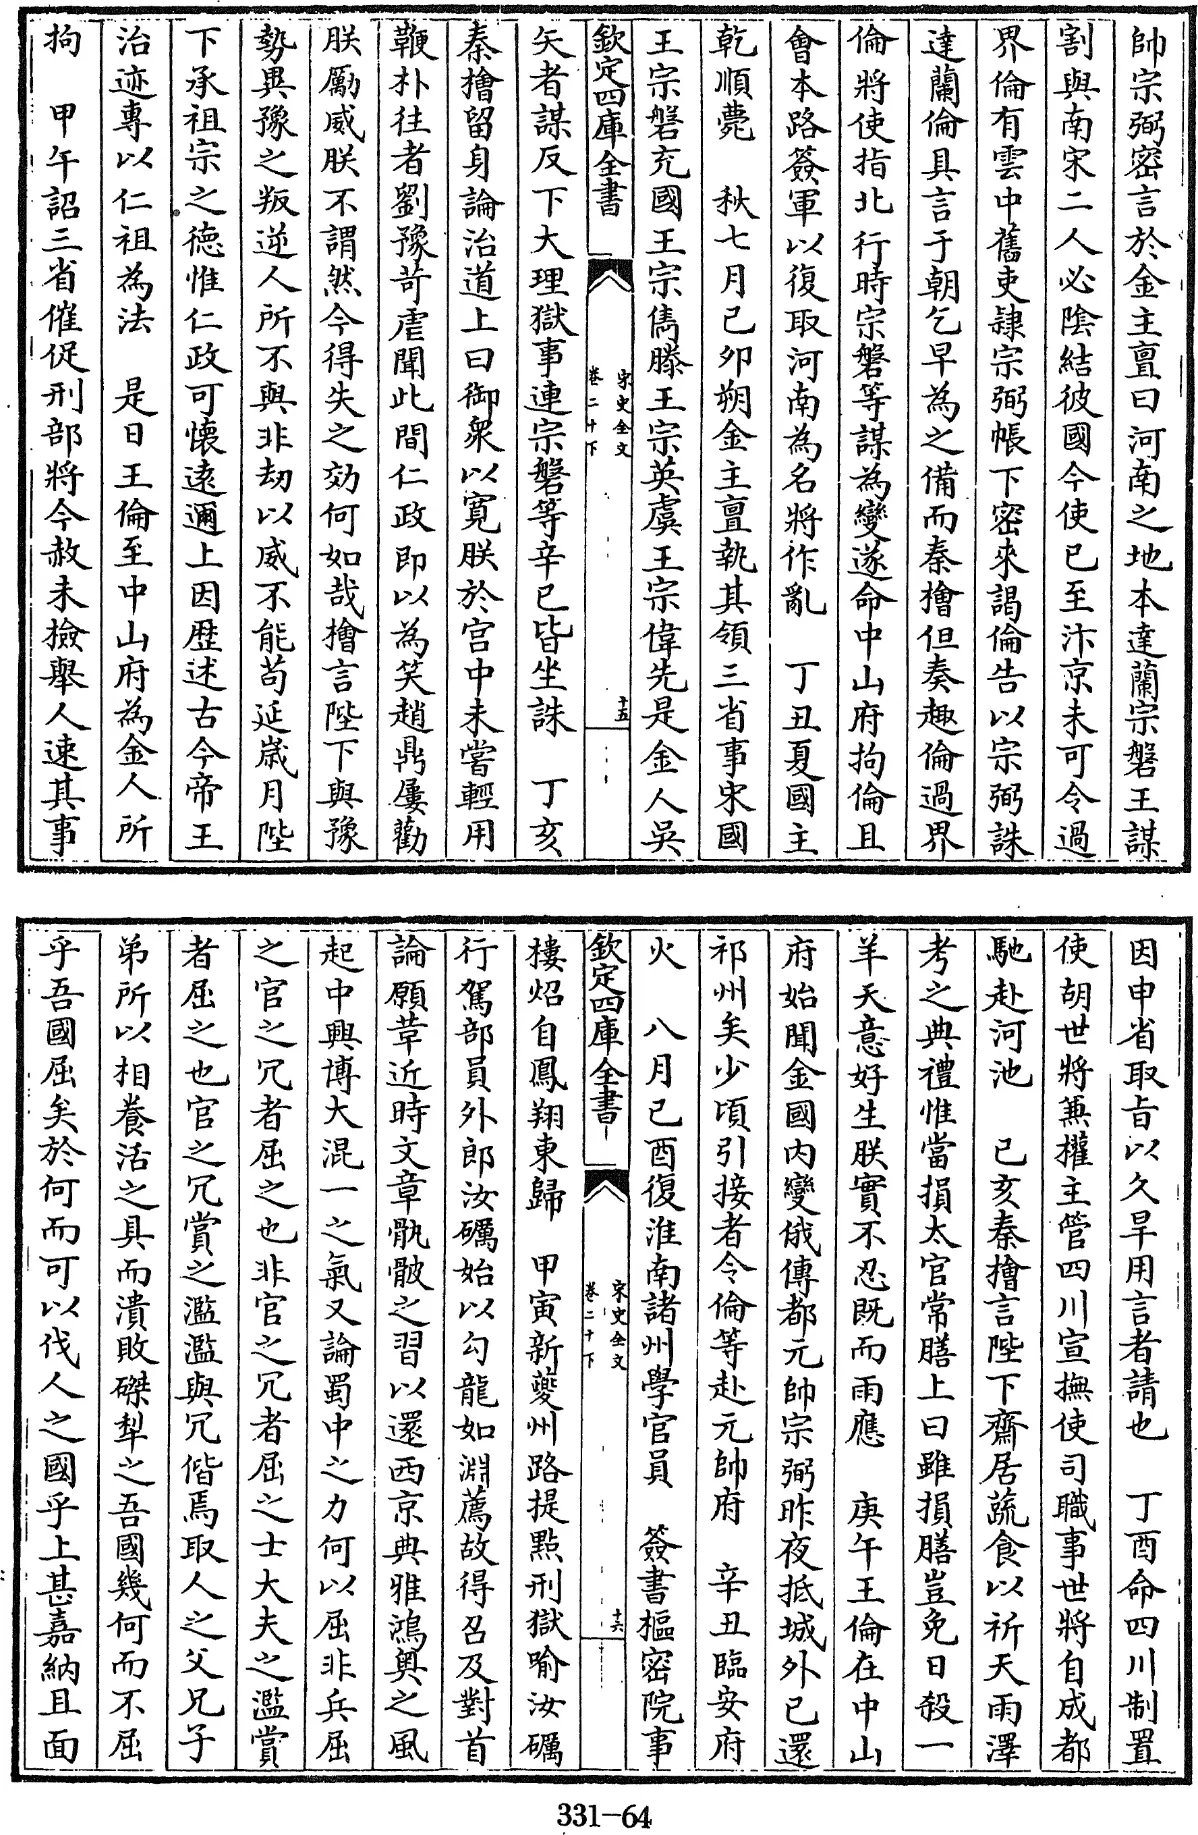 帥宗弼密言於金主亶曰河南之地本達蘭宗磐王謀
割與南宋二人必陰結彼國今使已至汴京未可令過
界倫有雲中舊吏隷宗弼帳下密來謁倫告以宗弼誅
達蘭倫具言于朝乞早為之備而秦檜但奏趣倫過界
倫將使指北行時宗磐等謀為變遂命中山府拘倫且
會本路簽軍以復取河南為名將作亂　丁丑夏國主
乾順薨　秋七月己夘朔金主亶執其領三省事宋國
王宗磐兖國王宗儁滕王宗英虞王宗偉先是金人吳
欽定四庫全書
宋史全文
卷二十下
十五
矢者謀反下大理獄事連宗磐等辛巳皆坐誅　丁亥
秦檜留身論治道上曰御衆以寛朕於宫中未嘗輕用
鞭朴往者劉豫苛虐聞此間仁政即以為笑趙鼎屢勸
朕勵威朕不謂然今得失之効何如哉檜言陛下與豫
勢異豫之叛逆人所不與非刧以威不能茍延歳月陛
下承祖宗之德惟仁政可懷逺邇上因歴述古今帝王
治迹專以仁祖為法　是日王倫至中山府為金人所
拘　甲午詔三省催促刑部將今赦未撿舉人速其事
因申省取㫖以久旱用言者請也　丁酉命四川制置
使胡世將兼權主管四川宣撫使司職事世將自成都
馳赴河池　己亥秦檜言陛下齋居蔬食以祈天雨澤
考之典禮惟當損太官常膳上曰雖損膳豈免日殺一
羊天意好生朕實不忍既而雨應　庚午王倫在中山
府始聞金國内變俄傳都元帥宗弼昨夜抵城外已還
祁州矣少頃引接者令倫等赴元帥府　辛丑臨安府
火　八月己酉復淮南諸州學官員　簽書樞密院事
欽定四庫全書
宋史全文
卷二十下
十六
樓炤自鳳翔東歸　甲寅新夔州路提㸃刑獄喻汝礪
行駕部員外郎汝礪始以勾龍如淵薦故得召及對首
論願革近時文章骫骳之習以還西京典雅鴻奥之風
起中興博大混一之氣又論蜀中之力何以屈非兵屈
之官之冗者屈之也非官之冗者屈之士大夫之濫賞
者屈之也官之冗賞之濫濫與冗偕焉取人之父兄子
弟所以相養活之具而潰敗磔犁之吾國幾何而不屈
乎吾國屈矣於何而可以伐人之國乎上甚嘉納且面
331-64